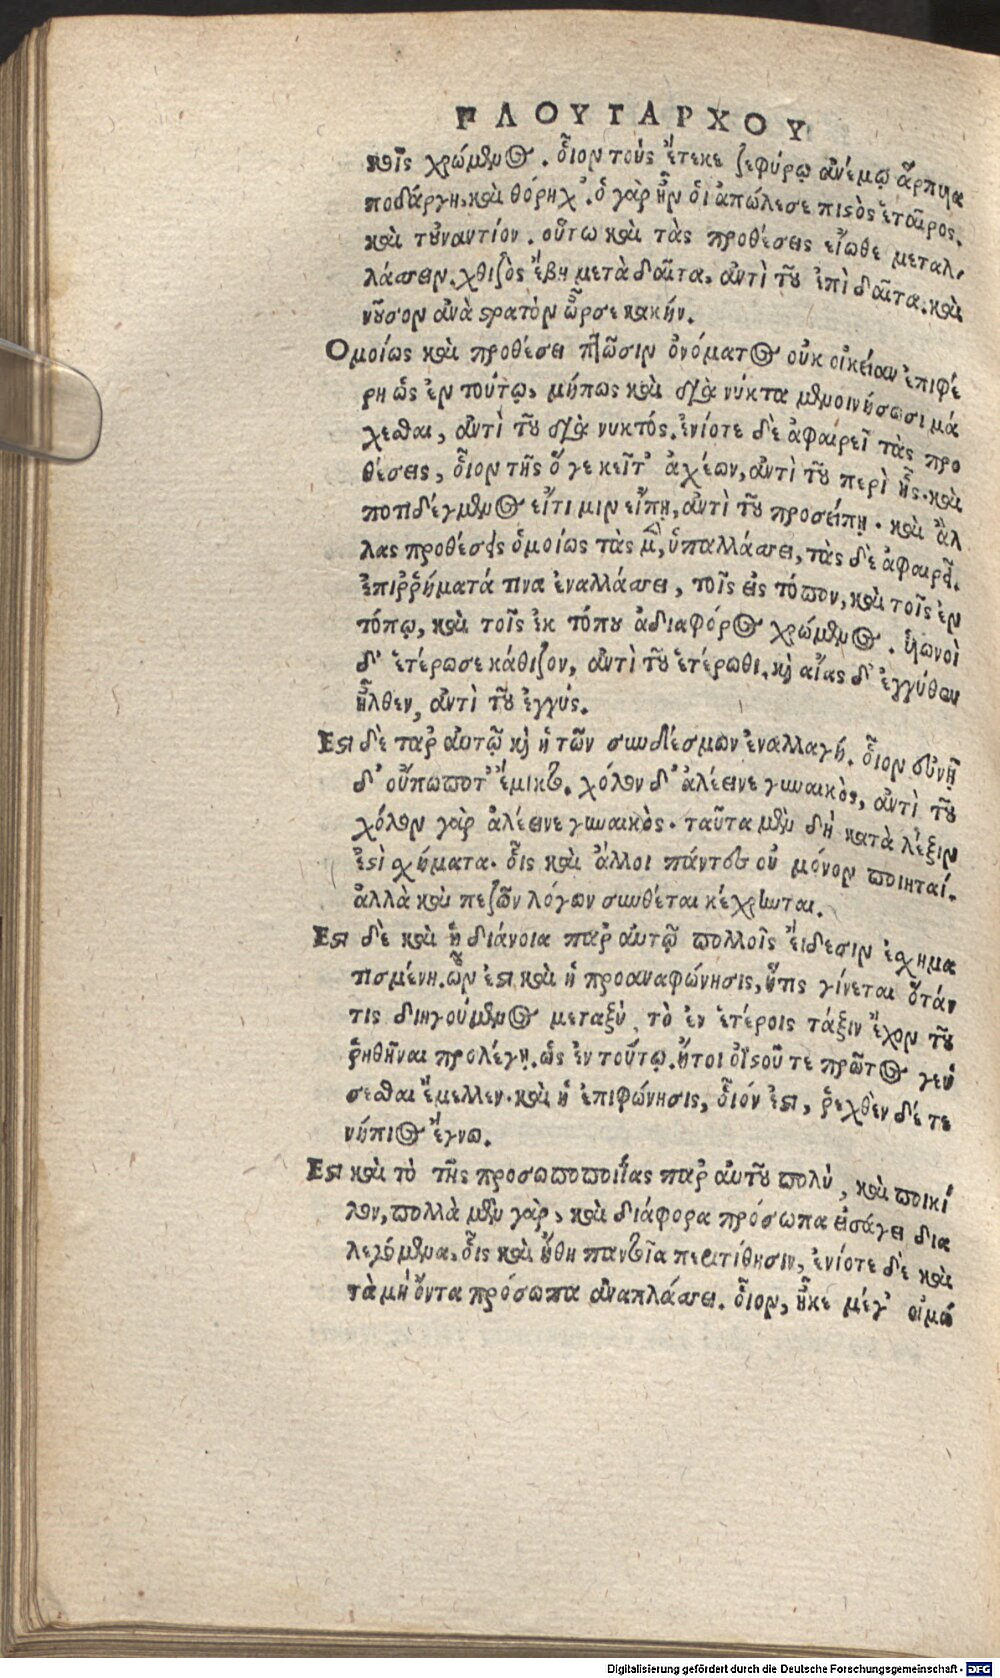 ΠΛΟΥΤΑΡΧΟΥ
κοῖς χρώμενος. οἷον τοὺς ἔτεκε ζεφύρῳ ἀνέμῳ ἅρπυια
ποδάργη. καὶ θόρηχ'. ὃ γὰρ ἦν ὁι ἀπώλεσε πιστὸς ἑταῖρος.
καὶ τοὐναντίον. οὕτω καὶ τὰς προθέσεις εἴωθε μεταλ-
λάττειν. χθιζὸς ἔβη μετὰ δαῖτα, ἀντὶ τοῦ ἐπὶ δαῖτα. καὶ
νοῦσον ἀνὰ στρατὸν ὦρσε κακήν.
Ομοίως καὶ προθέσει πτῶσιν ὀνόματος οὐκ οἰκείαν ἐπιφέ
ρη ὡς ἐν τούτῳ, μήπως καὶ διὰ νύκτα μενοινήσωσι μά
χεσθαι, ἀντὶ τοῦ διὰ νυκτός. ἐνίοτε δὲ ἀφαιρεῖ τὰς προ
θέσεις, οἷον τῆς ὅ γε κεῖτ' ἀχέων, ἀντὶ τοῦ περὶ ἧς. καὶ
ποτιδέγμενος εἴτι μιν εἴπῃ, ἀντὶ τοῦ προσείπῃ. καὶ ἄλ
λας προθέσεις ὁμοίως τὰς μὲν, ὑπαλλάττει, τὰς δὲ ἀφαιρεῖ.
ἐπιῤῥήματά τινα ἐναλλάττει, τοῖς εἰς τόπον, καὶ τοῖς ἐν
τόπῳ, καὶ τοῖς ἐκ τόπου ἀδιαφόρος χρώμενος. ἡωνοὶ
δ' ἑτέρωσε κάθιζον, ἀντὶ τοῦ ἑτέρωθι. καὶ αἴας δ' ἐγγύθεν
ἦλθεν, ἀντὶ τοῦ ἐγγύς.
Εστι δὲ παρ αὐτῷ καὶ ἡ τῶν συνδέσμων ἐναλλαγή. οἷον εὐνῇ
δ' οὔπωποτ' ἔμικτο. χόλον δ' ἀλέεινε γυναικὸς, ἀντὶ τοῦ
χόλον γὰρ ἀλέεινε γυναικὸς. ταῦτα μὲν δὴ κατὰ λέξιν
ἐστὶ σχήματα. οἷς καὶ ἄλλοι πάντες οὐ μόνον ποιηταί.
ἀλλὰ καὶ πεζῶν λόγων συνθέται κέχρηνται.
Εστι δὲ καὶ ἡ διάνοια παρ αὐτῷ πολλοῖς εἴδεσιν ἐσχημα
τισμένη. ὧν ἐστι καὶ ἡ προαναφώνησις, ἥτις γίνεται ὅταν
τις διηγούμενος μεταξὺ, τὸ ἐν ἑτέροις τάξιν ἔχον τοῦ
ῥηθῆναι προλέγῃ. ὡς ἐν τούτῳ. ἤτοι ὀϊστοῦ τε πρῶτος γεύ
σεσθαι ἔμελλεν. καὶ ἡ ἐπιφώνησις, οἷόν ἐστι, ῥεχθὲν δέ τε
νήπιος ἔγνω.
Εστι καὶ τὸ τῆς προσωποποιΐας παρ αὐτοῦ πολὺ, καὶ ποικί
λον, πολλὰ μὲν γὰρ, καὶ διάφορα πρόσωπα εἰσάγει δια
λεγόμενα. οἷς καὶ ἤθη παντοῖα περιτίθησιν, ἐνίοτε δὲ καὶ
τὰ μὴ ὄντα πρόσωπα ἀναπλάττει. οἷον, ἦ κε μέγ' οἰμώ
Digitalisierung gefördert durch die Deutsche Forschungsgemeinschaft - DFG